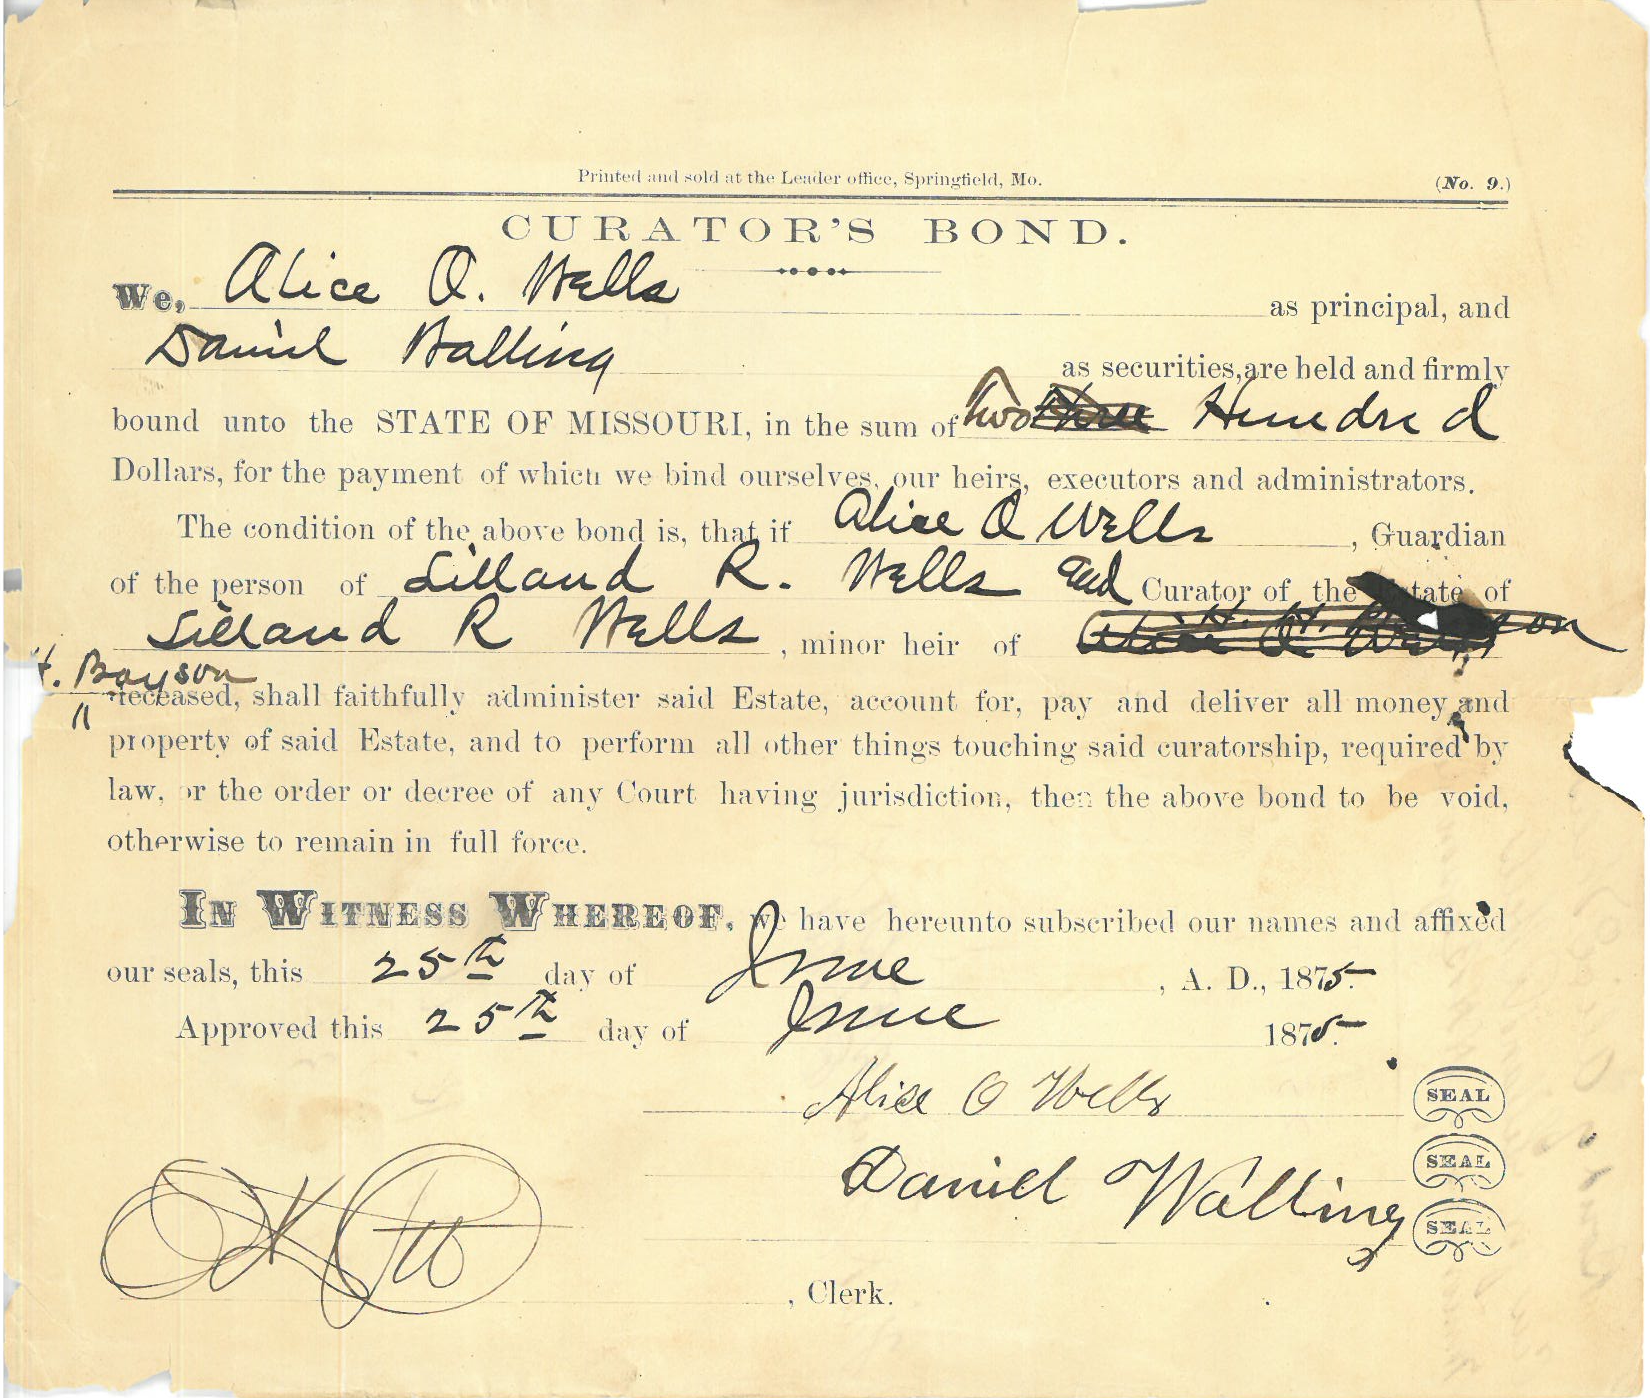 Printed and sold at the Leader office, Springfield, Mo. (No. 9.)
CURATOR'S BOND.
We, Alice O. Wells as principal, and
Daniel Walling as securities, are held and firmly
bound unto the STATE OF MISSOURI, in the sum of two three Hundred
Dollars, for the payment of which we bind ourselves, our heirs, executors and administrators.
The condition of the above bond is, that if Alice O Wells, Guardian
of the person of Lilland R. Wells and Curator of the Estate of
Lilland R Wells, minor heir of
H. Bayson
deceased, shall faithfully administer said Estate, account for, pay and deliver all money and
property of said Estate, and to perform all other things touching said curatorship, required by
law, or the order or decree of any Court having jurisdiction, then the above bond to be void,
otherwise to remain in full force.
IN WITNESS WHEREOF, we have hereunto subscribed our names and affixed
our seals, this 25th day of June, A. D., 1875.
Approved this 25th day of June 1875.
Alice O Wells SEAL
Daniel Walling SEAL
SEAL
OK
, Clerk.